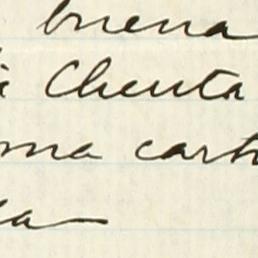 buena
Chenta
ma cart
a